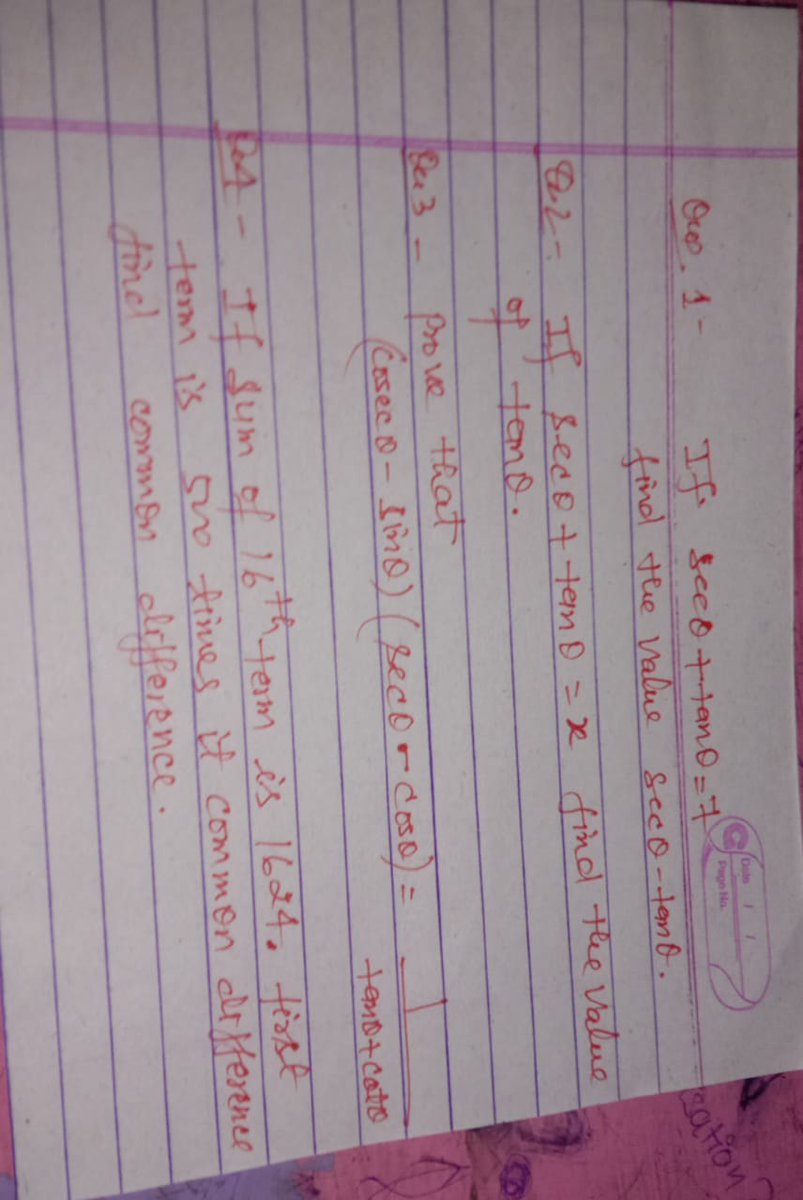 Date / /
Page No.
Que. 1 - If secθ + tanθ = 7
find the value secθ - tanθ.
Qu.2 - If secθ + tanθ = x find the value
of tanθ.
Qu 3 - Prove that
(cosecθ - sinθ) (secθ - cosθ) = 1
tanθ + cotθ
Qu.4 - If sum of 16th term is 1624. first
term is 500 times it common difference
find common difference.